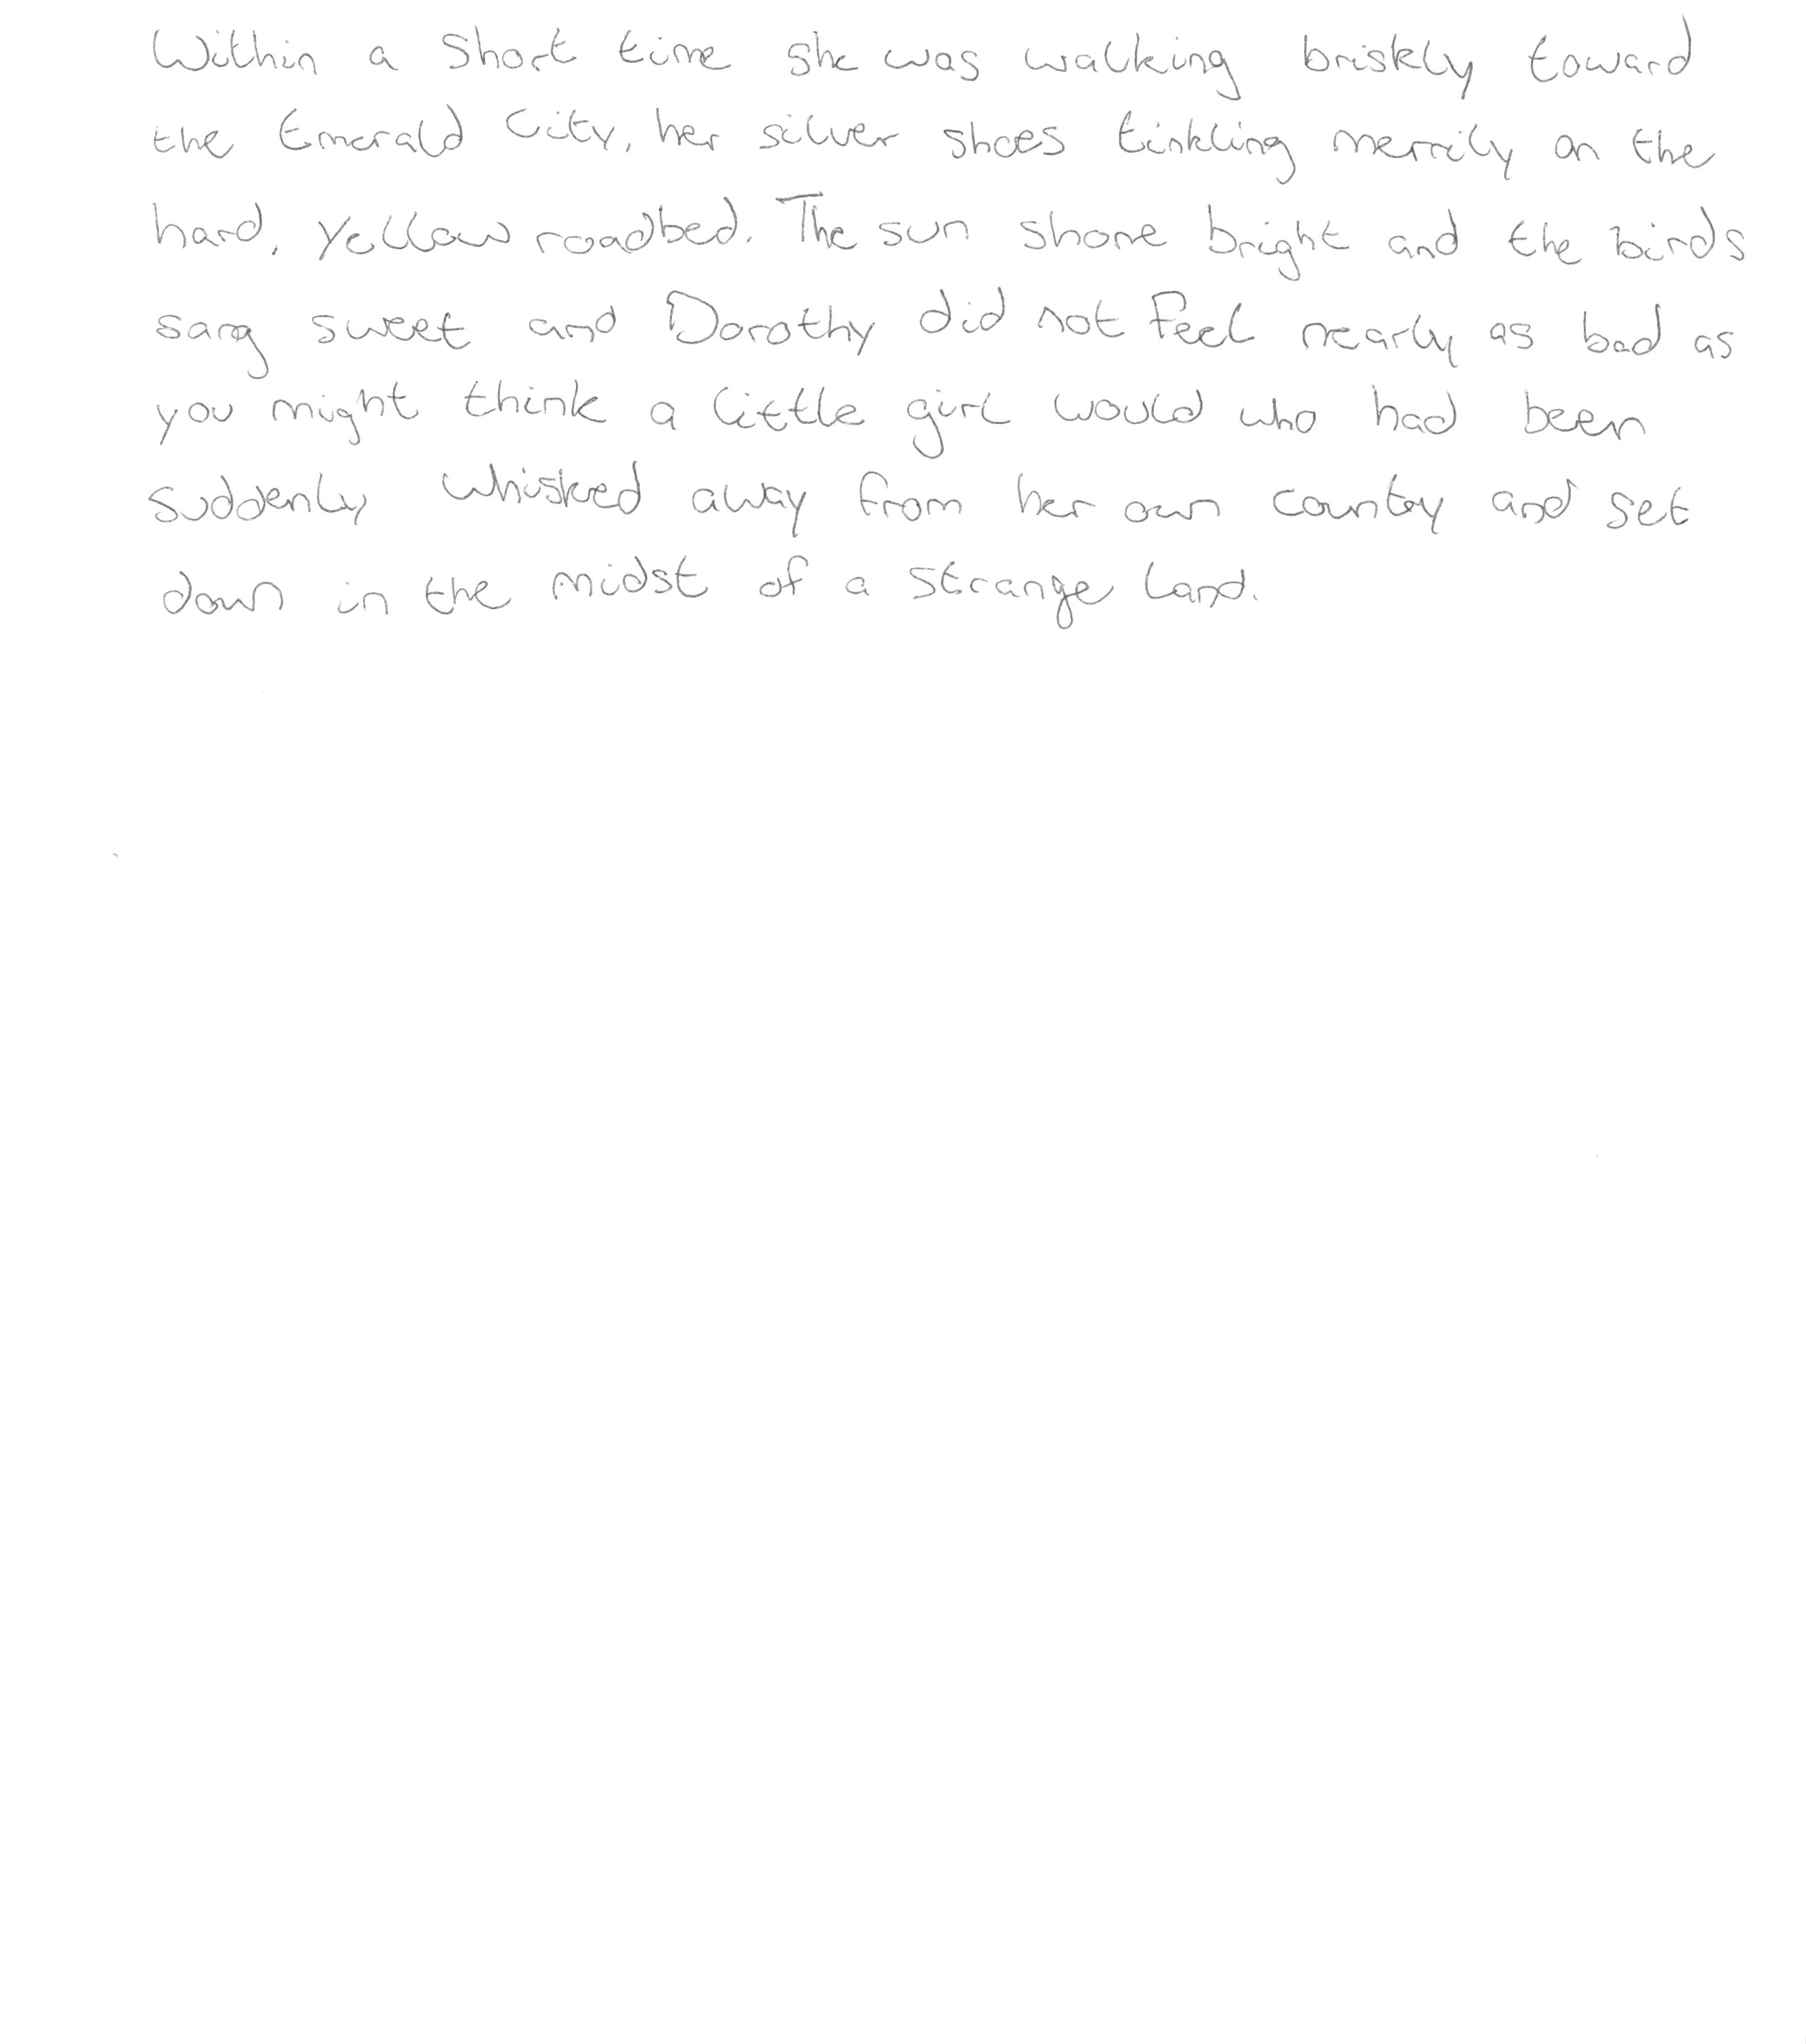 Within a short time she was walking briskly toward
the Emerald City, her silver shoes tinkling merrily on the
hard, yellow roadbed. The sun shone bright and the birds
sang sweet and Dorothy did not feel nearly as bad as
you might think a little girl would who had been
suddenly whisked away from her own country and set
down in the midst of a strange land.